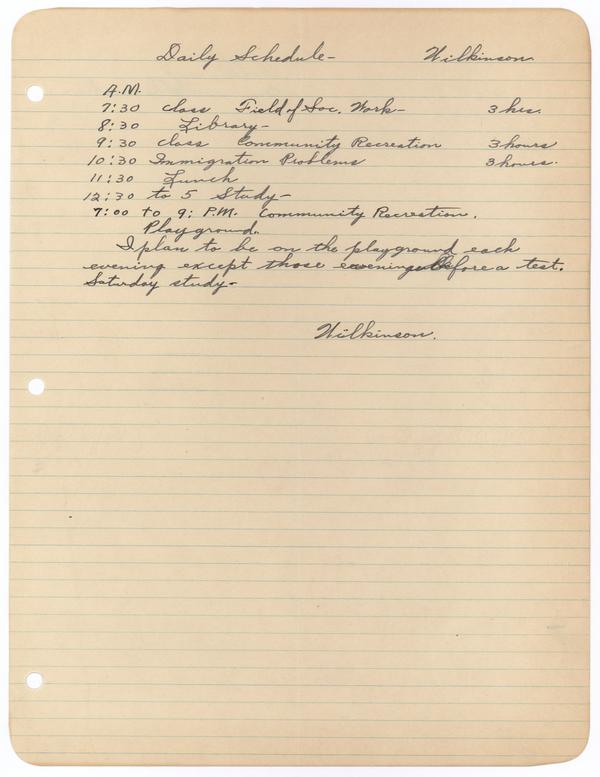 Daily Schedule- Wilkinson.
A.M.
7:30 class Field of Soc. Work- 3 hrs.
8:30 Library-
9:30 class Community Recreation 3 hours
10:30 Immigration Problems 3 hours.
11:30 Lunch
12:30 to 5 Study-
7:00 to 9: P.M. Community Recreation.
Playground.
I plan to be on the playground each
evening except those evenings before a test.
Saturday study-
Wilkinson.